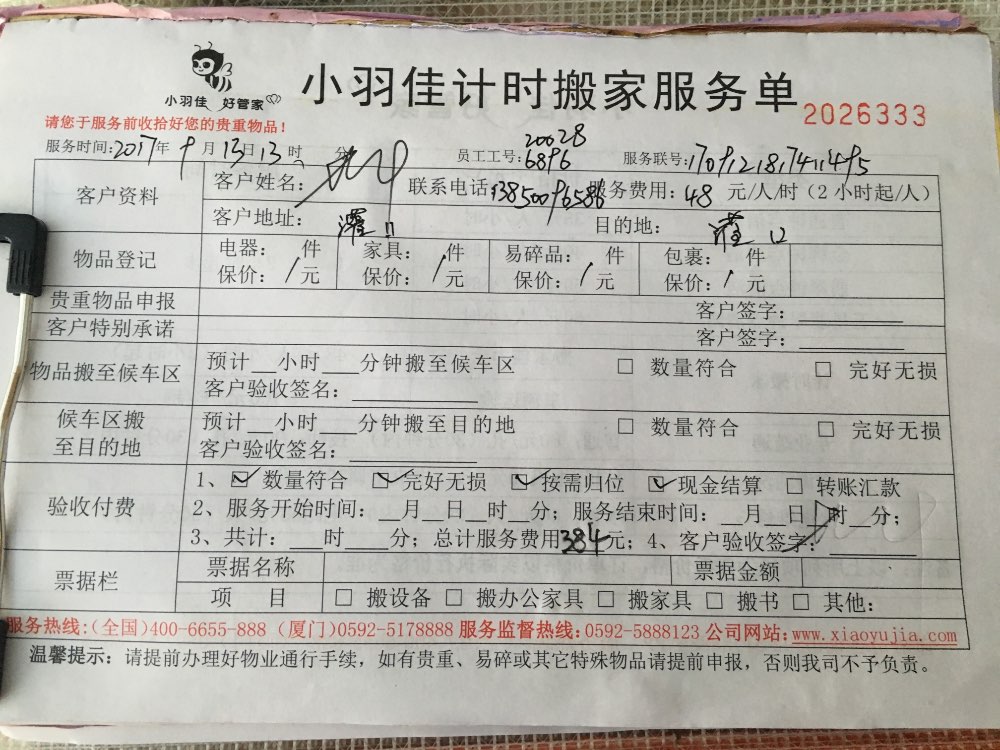 小羽佳 好管家
小羽佳计时搬家服务单
2026333
请您于服务前收拾好您的贵重物品！
服务时间：2017年9月13日13时 分 员工工号：20028 6896 服务联号：
客户资料 客户姓名： 联系电话：13850096586 服务费用：48元/人/时（2小时起/人）
客户地址： 目的地：
物品登记 电器： 件 家具： 件 易碎品： 件 包裹： 件
保价：/元 保价：/元 保价：/元 保价：/元
贵重物品申报 客户签字：
客户特别承诺 客户签字：
物品搬至候车区 预计__小时___分钟搬至候车区 □ 数量符合 □ 完好无损
客户验收签名：
候车区搬至目的地 预计__小时___分钟搬至目的地 □ 数量符合 □ 完好无损
客户验收签名：
验收付费 1、☑ 数量符合 ☑ 完好无损 ☑ 按需归位 ☑ 现金结算 □ 转账汇款
2、服务开始时间：__月__日__时__分；服务结束时间：__月__日__时__分；
3、共计：___时____分；总计服务费用384元；4、客户验收签字：
票据栏 票据名称 票据金额
项 目 □ 搬设备 □ 搬办公家具 □ 搬家具 □ 搬书 □ 其他：
服务热线：(全国)400-6655-888 (厦门)0592-5178888 服务监督热线：0592-5888123 公司网站：www.xiaoyujia.com
温馨提示：请提前办理好物业通行手续，如有贵重、易碎或其它特殊物品请提前申报，否则我司不予负责。